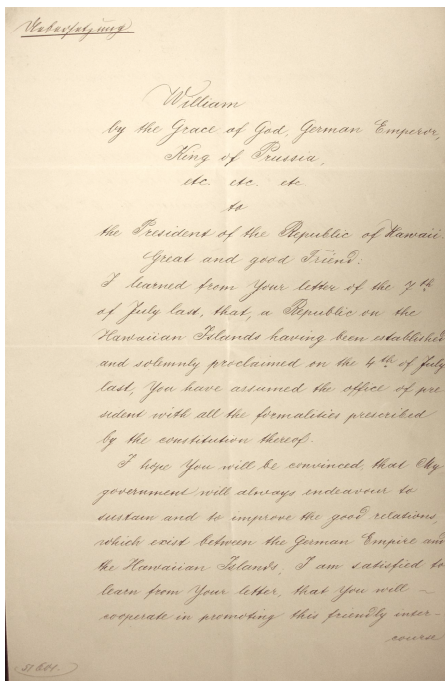 Uebersetzung
William
by the Grace of God, German Emperor,
King of Prussia,
etc. etc. etc
to
the President of the Republic of Hawaii.
Great and good Friend:
I learned from Your letter of the 7th
of July last, that, a Republic on the
Hawaiian Islands having been established
and solemnly proclaimed on the 4th of July
last, You have assumed the office of pre
sident with all the formalities prescribed
by the constitution thereof.
I hope You will be convinced, that My
government will always endeavour to
sustain and to improve the good relations,
which exist between the German Empire and
the Hawaiian Islands; I am satisfied to
learn from Your letter, that You will –
cooperate in promoting this friendly inter-
course